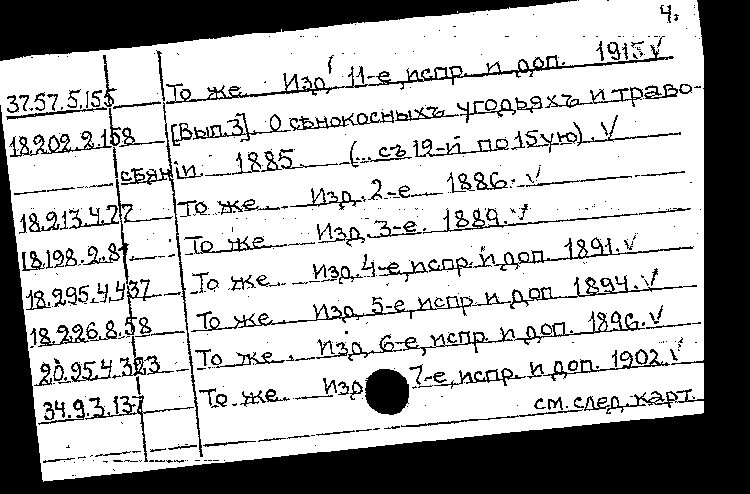 4.
37.57.5.155 То же. Изд. 11-е, испр. и доп. 1915 √
18.202.2.158 [Вып.3]. О сѣнокосныхъ угодьяхъ и траво-
сѣянiи. 1885. (... съ 12-й по 15ую). √
18.213.4.27 То же. Изд. 2-е 1886. √
18.198.2.81. То же Изд. 3-е. 1889. √
18.295.4.437 То же. Изд. 4-е, испр. и доп. 1891. √
18.226.8.58 То же. Изд 5-е, испр. и доп 1894. √
20.95.4.323 То же. Изд. 6-е, испр. и доп. 1896. √
34.9.3.137 То же. Изд 7-е, испр. и доп. 1902. √
см. след. карт.